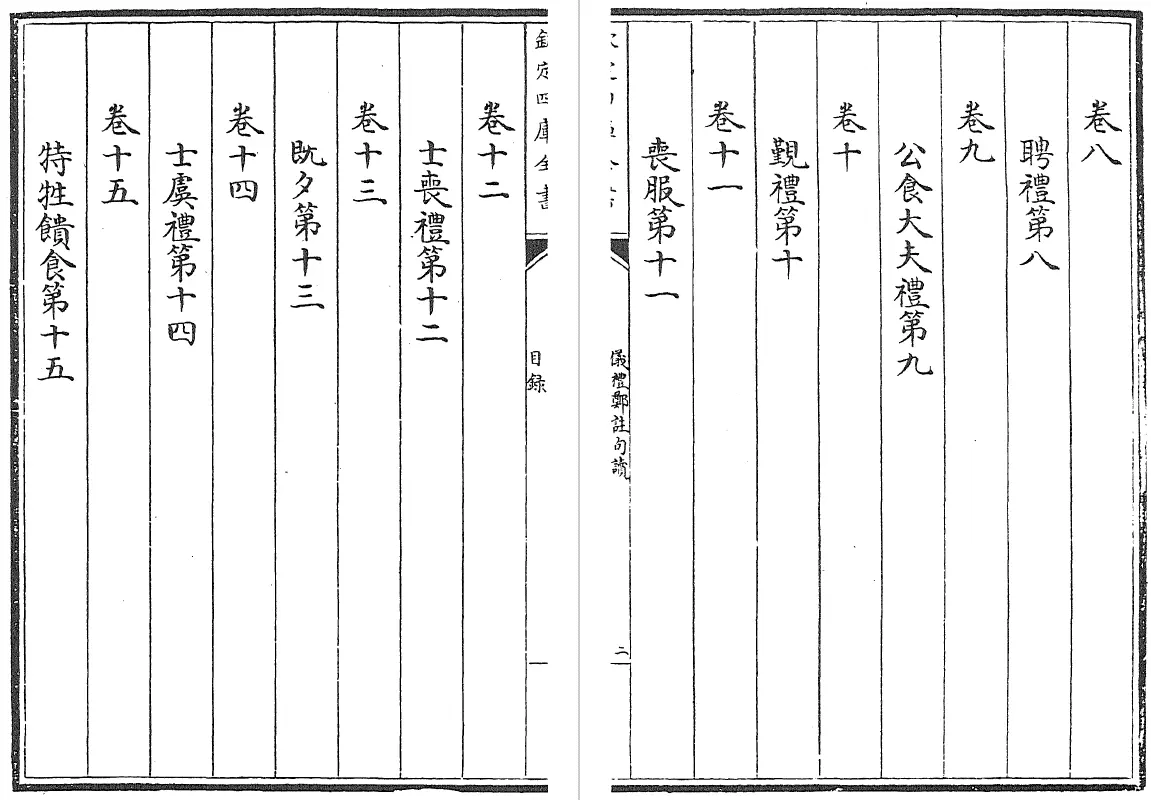 卷八
聘禮第八
卷九
公食大夫禮第九
卷十
覲禮第十
卷十一
喪服第十一
儀禮鄭註句讀
二
欽定四庫全書
目録
卷十二
士喪禮第十二
卷十三
既夕第十三
卷十四
士虞禮第十四
卷十五
特牲饋食第十五